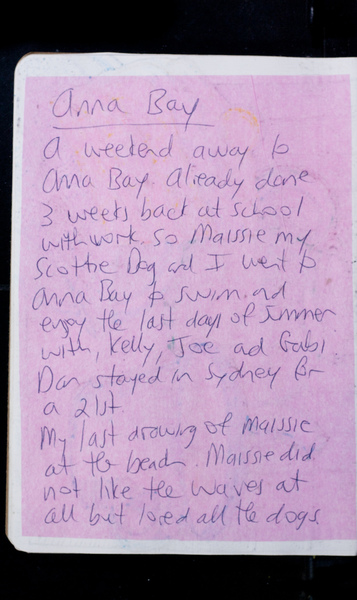 Anna Bay
A weekend away to
Anna Bay. Already done
3 weeks back at school
with work. So Maissie my
Scottie Dog and I went to
Anna Bay to swim and
enjoy the last days of summer
with, Kelly, Joe and Gabi
Dan stayed in Sydney for
a 21st.
My last drawing of Maissie
at the beach. Maissie did
not like the waves at
all but loved all the dogs.